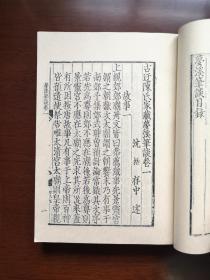 夢溪筆談目錄
古迂陳氏家藏夢溪筆談卷一
沈括存中述
故事一
上親郊廟冊文皆曰恭薦歲事先景靈宮
謂之朝獻次太廟謂之朝饗末乃有事于
南郊予集郊式時曾預討論常疑其次序
若先爲尊則郊不應在廟後若後爲尊則
景靈宮不應在太廟之先求其所從來蓋
有所因按唐故事凡有事于上帝則百神
皆預遣使祭告唯太清宮太廟則皇帝親